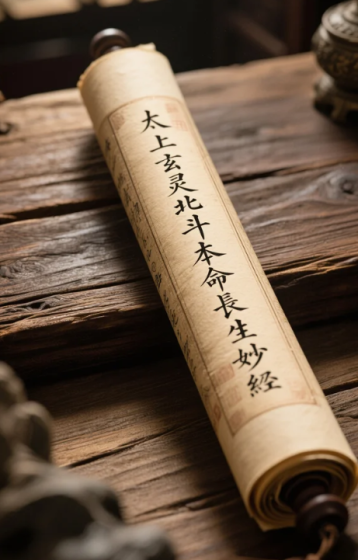 太上玄灵北斗本命長生妙經